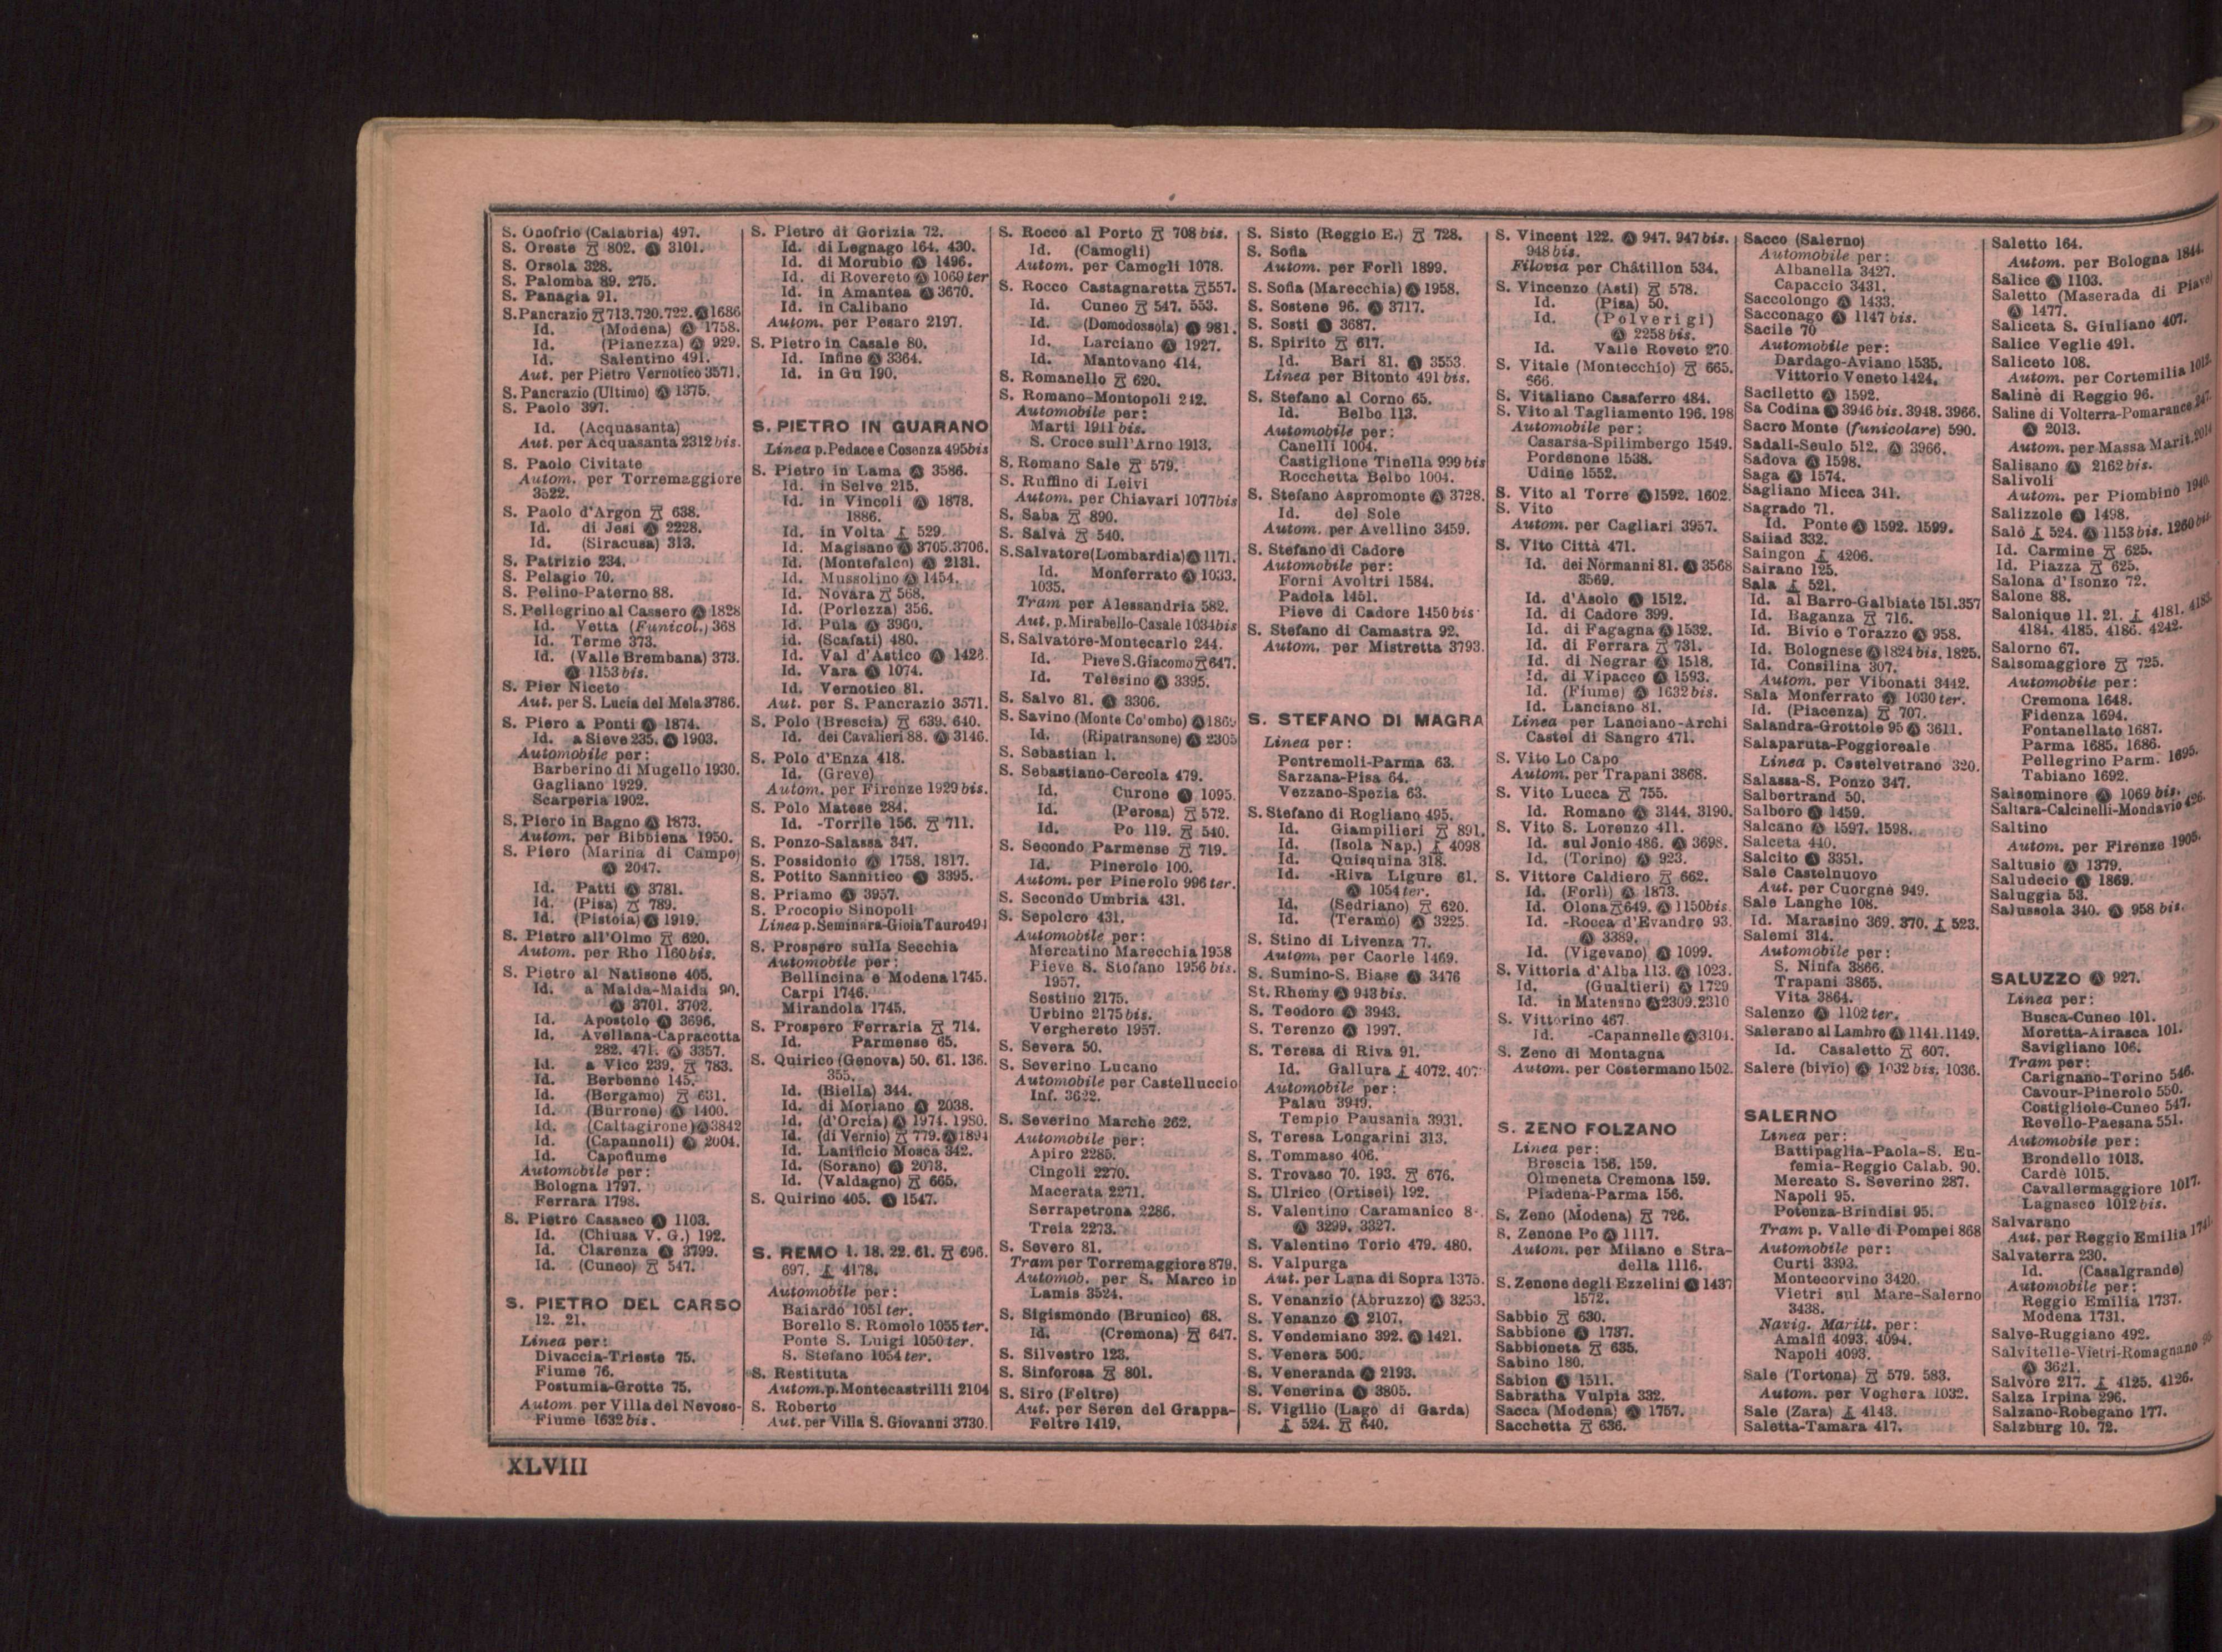 S. Onofrio (Calabria) 497.
S. Oreste 802. Ⓐ 3101.
S. Orsola 328.
S. Palomba 89. 275.
S. Panagia 91.
S. Pancrazio 713. 720. 722. Ⓐ 1686
Id. (Modena) Ⓐ 1758.
Id. (Pianezza) Ⓐ 929.
Id. Salentino 491.
Aut. per Pietro Vernotico 3571.
S. Pancrazio (Ultimo) Ⓐ 1375.
S. Paolo 397.
Id. (Acquasanta)
Aut. per Acquasanta 2312 bis.
S. Paolo Civitate
Autom. per Torremaggiore
3522.
S. Paolo d'Argon 638.
Id. di Jesi Ⓐ 2228.
Id. (Siracusa) 313.
S. Patrizio 234.
S. Pelagio 70.
S. Pelino-Paterno 88.
S. Pellegrino al Cassero Ⓐ 1828
Id. Vetta (Funicol.) 368
Id. Terme 373.
Id. (Valle Brembana) 373.
Ⓐ 1153 bis.
S. Pier Niceto
Aut. per S. Lucia del Mela 3786.
S. Piero a Ponti Ⓐ 1874.
Id. a Sieve 235. Ⓐ 1903.
Automobile per:
Barberino di Mugello 1930.
Gagliano 1929.
Scarperia 1902.
S. Piero in Bagno Ⓐ 1873.
Autom. per Bibbiena 1950.
S. Piero (Marina di Campo)
Ⓐ 2047.
Id. Patti Ⓐ 3781.
Id. (Pisa) 789.
Id. (Pistoia) Ⓐ 1919.
S. Pietro all'Olmo 620.
Autom. per Rho 1160 bis.
S. Pietro al Natisone 405.
Id. a Maida-Maida 90.
Ⓐ 3701. 3702.
Id. Apostolo Ⓐ 3696.
Id. Avellana-Capracotta
282. 471. Ⓐ 3357.
Id. a Vico 239. 783.
Id. Berbenno 145.
Id. (Bergamo) 631.
Id. (Burrone) Ⓐ 1400.
Id. (Caltagirone) Ⓐ 3842
Id. (Capannoli) Ⓐ 2004.
Id. Capofiume
Automobile per:
Bologna 1797.
Ferrara 1798.
S. Pietro Casasco Ⓐ 1103.
Id. (Chiusa V. G.) 192.
Id. Clarenza Ⓐ 3799.
Id. (Cuneo) 547.
S. PIETRO DEL CARSO
12. 21.
Linea per:
Divaccia-Trieste 75.
Fiume 76.
Postumia-Grotte 75.
Autom. per Villa del Nevoso-
Fiume 1632 bis.
S. Pietro di Gorizia 72.
Id. di Legnago 164. 430.
Id. di Morubio Ⓐ 1496.
Id. di Rovereto Ⓐ 1069 ter
Id. in Amantea Ⓐ 3670.
Id. in Calibano
Autom. per Pesaro 2197.
S. Pietro in Casale 80.
Id. Infine Ⓐ 3364.
Id. in Gu 190.
S. PIETRO IN GUARANO
Linea p. Pedace e Cosenza 495 bis
S. Pietro in Lama Ⓐ 3586.
Id. in Selve 215.
Id. in Vincoli Ⓐ 1878.
1886.
Id. in Volta 529.
Id. Magisano Ⓐ 3705. 3706.
Id. (Montefalco) Ⓐ 2131.
Id. Mussolino Ⓐ 1454.
Id. Novara 568.
Id. (Porlezza) 356.
Id. Pula Ⓐ 3960.
id. (Scafati) 480.
Id. Val d'Astico Ⓐ 1423.
Id. Vara Ⓐ 1074.
Id. Vernotico 81.
Aut. per S. Pancrazio 3571.
S. Polo (Brescia) 639. 640.
Id. dei Cavalieri 88. Ⓐ 3146.
S. Polo d'Enza 418.
Id. (Greve)
Autom. per Firenze 1929 bis.
S. Polo Matese 284.
Id. -Torrile 156. 711.
S. Ponzo-Salassa 347.
S. Possidonio Ⓐ 1758. 1817.
S. Potito Sannitico Ⓐ 3395.
S. Priamo Ⓐ 3957.
S. Procopio Sinopoli
Linea p. Seminara-Gioia Tauro 494
S. Prospero sulla Secchia
Automobile per:
Bellincina e Modena 1745.
Carpi 1746.
Mirandola 1745.
S. Prospero Ferraria 714.
Id. Parmense 65.
S. Quirico (Genova) 50. 61. 136.
355.
Id. (Biella) 344.
Id. di Moriano Ⓐ 2038.
Id. (d'Orcia) Ⓐ 1974. 1980.
Id. (di Vernio) 779. Ⓐ 1894
Id. Lanificio Mosca 342.
Id. (Sorano) Ⓐ 2013.
Id. (Valdagno) 665.
S. Quirino 405. Ⓐ 1547.
S. REMO 1. 18. 22. 61. 696.
697. 4178.
Automobile per:
Baiardo 1051 ter.
Borello S. Romolo 1055 ter.
Ponte S. Luigi 1050 ter.
S. Stefano 1054 ter.
S. Restituta
Autom. p. Montecastrilli 2104
S. Roberto
Aut. per Villa S. Giovanni 3730.
S. Rocco al Porto 708 bis.
Id. (Camogli)
Autom. per Camogli 1078.
S. Rocco Castagnaretta 557.
Id. Cuneo 547. 553.
Id. (Domodossola) Ⓐ 981.
Id. Larciano Ⓐ 1927.
Id. Mantovano 414.
S. Romanello 620.
S. Romano-Montopoli 242.
Automobile per:
Marti 1911 bis.
S. Croce sull'Arno 1913.
S. Romano Sale 579.
S. Ruffino di Leivi
Autom. per Chiavari 1077 bis
S. Saba 890.
S. Salvà 540.
S. Salvatore (Lombardia) Ⓐ 1171.
Id. Monferrato Ⓐ 1033.
1035.
Tram per Alessandria 582.
Aut. p. Mirabello-Casale 1034 bis
S. Salvatore-Montecarlo 244.
Id. Pieve S. Giacomo 647.
Id. Telesino Ⓐ 3395.
S. Salvo 81. Ⓐ 3306.
S. Savino (Monte Co'ombo) Ⓐ
Id. (Ripatransone) Ⓐ 2305
S. Sebastian 1.
S. Sebastiano-Cercola 479.
Id. Curone Ⓐ 1095.
Id. (Perosa) 572.
Id. Po 119. 540.
S. Secondo Parmense 719.
Id. Pinerolo 100.
Autom. per Pinerolo 996 ter.
S. Secondo Umbria 431.
S. Sepolcro 431.
Automobile per:
Mercatino Marecchia 1958
Pieve S. Stefano 1956 bis.
1957.
Sestino 2175.
Urbino 2175 bis.
Verghereto 1957.
S. Severa 50.
S. Severino Lucano
Automobile per Castelluccio
Inf. 3622.
S. Severino Marche 262.
Automobile per:
Apiro 2285.
Cingoli 2270.
Macerata 2271.
Serrapetrona 2286.
Treia 2273.
S. Severo 81.
Tram per Torremaggiore 879.
Automob. per S. Marco in
Lamis 3524.
S. Sigismondo (Brunico) 68.
Id. (Cremona) 647.
S. Silvestro 123.
S. Sinforosa 801.
S. Siro (Feltre)
Aut. per Seren del Grappa-
Feltre 1419.
S. Sisto (Reggio E.) 728.
S. Sofia
Autom. per Forlì 1899.
S. Sofia (Marecchia) Ⓐ 1958.
S. Sostene 96. Ⓐ 3717.
S. Sosti Ⓐ 3687.
S. Spirito 617.
Id. Bari 81. Ⓐ 3553
Linea per Bitonto 491 bis.
S. Stefano al Corno 65.
Id. Belbo 113.
Automobile per:
Canelli 1004.
Castiglione Tinella 999 bis
Rocchetta Belbo 1004.
S. Stefano Aspromonte Ⓐ 3728.
Id. del Sole
Autom. per Avellino 3459.
S. Stefano di Cadore
Automobile per:
Forni Avoltri 1584.
Padola 1451.
Pieve di Cadore 1450 bis
S. Stefano di Camastra 92.
Autom. per Mistretta 3793.
S. STEFANO DI MAGRA
Linea per:
Pontremoli-Parma 63.
Sarzana-Pisa 64.
Vezzano-Spezia 63.
S. Stefano di Rogliano 495.
Id. Giampilieri 891.
Id. (Isola Nap.) 4098
Id. Quisquina 318.
Id. -Riva Ligure 61.
Ⓐ 1054 ter.
Id. (Sedriano) 620.
Id. (Teramo) Ⓐ 3225.
S. Stino di Livenza 77.
Autom. per Caorle 1469.
S. Sumino-S. Biase Ⓐ 3476
St. Rhemy Ⓐ 943 bis.
S. Teodoro Ⓐ 3943.
S. Terenzo Ⓐ 1997.
S. Teresa di Riva 91.
Id. Gallura 4072.
Automobile per:
Palau 3949.
Tempio Pausania 3931.
S. Teresa Longarini 313.
S. Tommaso 406.
S. Trovaso 70. 193. 676.
S. Ulrico (Ortisei) 192.
S. Valentino Caramanico
Ⓐ 3299. 3327.
S. Valentino Torio 479. 480.
S. Valpurga
Aut. per Lana di Sopra 1375.
S. Venanzio (Abruzzo) Ⓐ 3253.
S. Venanzo Ⓐ 2107.
S. Vendemiano 392. Ⓐ 1421.
S. Venera 500.
S. Veneranda Ⓐ 2193.
S. Venerina Ⓐ 3805.
S. Vigilio (Lago di Garda)
524. 640.
S. Vincent 122. Ⓐ 947. 947 bis.
948 bis.
Filovia per Châtillon 534.
S. Vincenzo (Asti) 578.
Id. (Pisa) 50.
Id. (Polverigi)
Ⓐ 2258 bis.
Id. Valle Roveto 270
S. Vitale (Montecchio) 665.
666.
S. Vitaliano Casaferro 484.
S. Vito al Tagliamento 196. 198
Automobile per:
Casarsa-Spilimbergo 1549.
Pordenone 1538.
Udine 1552.
S. Vito al Torre Ⓐ 1592. 1602.
S. Vito
Autom. per Cagliari 3957.
S. Vito Città 471.
Id. dei Normanni 81. Ⓐ 3568
3569.
Id. d'Asolo Ⓐ 1512.
Id. di Cadore 399.
Id. di Fagagna Ⓐ 1532.
Id. di Ferrara 731.
Id. di Negrar Ⓐ 1518.
Id. di Vipacco Ⓐ 1593.
Id. (Fiume) Ⓐ 1632 bis.
Id. Lanciano 81.
Linea per Lanciano-Archi
Castel di Sangro 471.
S. Vito Lo Capo
Autom. per Trapani 3868.
S. Vito Lucca 755.
Id. Romano Ⓐ 3144. 3190.
S. Vito S. Lorenzo 411.
Id. sul Jonio 486. Ⓐ 3698.
Id. (Torino) Ⓐ 923.
S. Vittore Caldiero 662.
Id. (Forlì) Ⓐ 1873.
Id. Olona 649. Ⓐ 1150 bis.
Id. -Rocca d'Evandro 93.
Ⓐ 3389.
Id. (Vigevano) Ⓐ 1099.
S. Vittoria d'Alba 113. Ⓐ 1023.
Id. (Gualtieri) Ⓐ 1729
Id. in Matenano Ⓐ 2309. 2310
S. Vittorino 467.
Id. -Capannelle Ⓐ 3104.
S. Zeno di Montagna
Autom. per Costermano 1502.
S. ZENO FOLZANO
Linea per:
Brescia 156. 159.
Olmeneta Cremona 159.
Piadena-Parma 156.
S. Zeno (Modena) 726.
S. Zenone Po Ⓐ 1117.
Autom. per Milano e Stra-
della 1116.
S. Zenone degli Ezzelini Ⓐ 1437
1572.
Sabbio 630.
Sabbione Ⓐ 1737.
Sabbioneta 635.
Sabino 180.
Sabion Ⓐ 1511.
Sabratha Vulpia 332.
Sacca (Modena) Ⓐ 1757.
Sacchetta 636.
Sacco (Salerno)
Automobile per:
Albanella 3427.
Capaccio 3431.
Saccolongo Ⓐ 1433.
Sacconago Ⓐ 1147 bis.
Sacile 70
Automobile per:
Dardago-Aviano 1535.
Vittorio Veneto 1424.
Saciletto Ⓐ 1592.
Sa Codina Ⓐ 3946 bis. 3948. 3966.
Sacro Monte (funicolare) 590.
Sadali-Seulo 512. Ⓐ 3966.
Sadova Ⓐ 1598.
Saga Ⓐ 1574.
Sagliano Micca 341.
Sagrado 71.
Id. Ponte Ⓐ 1592. 1599.
Saiiad 332.
Saingon 4206.
Sairano 125.
Sala 521.
Id. al Barro-Galbiate 151. 357
Id. Baganza 716.
Id. Bivio e Torazzo Ⓐ 958.
Id. Bolognese Ⓐ 1824 bis. 1825.
Id. Consilina 307.
Autom. per Vibonati 3442.
Sala Monferrato Ⓐ 1030 ter.
Id. (Piacenza) 707.
Salandra-Grottole 95 Ⓐ 3611.
Salaparuta-Poggioreale
Linea p. Castelvetrano 320.
Salassa-S. Ponzo 347.
Salbertrand 50.
Salboro Ⓐ 1459.
Salcano Ⓐ 1597. 1598.
Salceta 440.
Salcito Ⓐ 3351.
Sale Castelnuovo
Aut. per Cuorgnè 949.
Sale Langhe 108.
Id. Marasino 369. 370. 523.
Salemi 314.
Automobile per:
S. Ninfa 3866.
Trapani 3865.
Vita 3864.
Salenzo Ⓐ 1102 ter.
Salerano al Lambro Ⓐ 1141. 1149.
Id. Casaletto 607.
Salere (bivio) Ⓐ 1032 bis. 1036.
SALERNO
Linea per:
Battipaglia-Paola-S. Eu-
femia-Reggio Calab. 90.
Mercato S. Severino 287.
Napoli 95.
Potenza-Brindisi 95.
Tram p. Valle di Pompei 868
Automobile per:
Curti 3393.
Montecorvino 3420.
Vietri sul Mare-Salerno
3438.
Navig. Maritt. per:
Amalfi 4093. 4094.
Napoli 4093.
Sale (Tortona) 579. 583.
Autom. per Voghera 1032.
Sale (Zara) 4143.
Saletta-Tamara 417.
Saletto 164.
Autom. per Bologna 1844.
Salice Ⓐ 1103.
Saletto (Maserada di Piave)
Ⓐ 1477.
Saliceta S. Giuliano 407.
Salice Veglie 491.
Saliceto 108.
Autom. per Cortemilia 1012.
Saline di Reggio 96.
Saline di Volterra-Pomarance 247.
Ⓐ 2013.
Autom. per Massa Marit. 2014
Salisano Ⓐ 2162 bis.
Salivoli
Autom. per Piombino 1940.
Salizzole Ⓐ 1498.
Salò 524. Ⓐ 1153 bis. 1260 bis.
Id. Carmine 625.
Id. Piazza 625.
Salona d'Isonzo 72.
Salone 88.
Salonique 11. 21. 4181. 4183.
4184. 4185. 4186. 4242.
Salorno 67.
Salsomaggiore 725.
Automobile per:
Cremona 1648.
Fidenza 1694.
Fontanellato 1687.
Parma 1685. 1686.
Pellegrino Parm. 1695.
Tabiano 1692.
Salsominore Ⓐ 1069 bis.
Saltara-Calcinelli-Mondavio 426.
Saltino
Autom. per Firenze 1905.
Saltusio Ⓐ 1379.
Saludecio Ⓐ 1869.
Saluggia 53.
Salussola 340. Ⓐ 958 bis.
SALUZZO Ⓐ 927.
Linea per:
Busca-Cuneo 101.
Moretta-Airasca 101.
Savigliano 106.
Tram per:
Carignano-Torino 546.
Cavour-Pinerolo 550.
Costigliole-Cuneo 547.
Revello-Paesana 551.
Automobile per:
Brondello 1013.
Cardè 1015.
Cavallermaggiore 1017.
Lagnasco 1012 bis.
Salvarano
Aut. per Reggio Emilia 1741.
Salvaterra 230.
Id. (Casalgrande)
Automobile per:
Reggio Emilia 1737.
Modena 1731.
Salve-Ruggiano 492.
Salvitelle-Vietri-Romagnano
Ⓐ 3621.
Salvore 217. 4125. 4126.
Salza Irpina 296.
Salzano-Robegano 177.
Salzburg 10. 72.
XLVIII